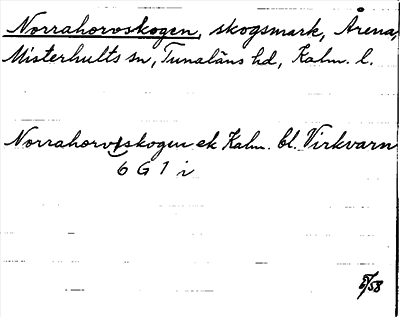 Norrahorvskogen, skogsmark, Årena,
Misterhults sn, Tunaläns hd, Kalm. l.
Norrahorvskogen ek Kalm. bl. Virkvarn
6 G 1 i
5/58